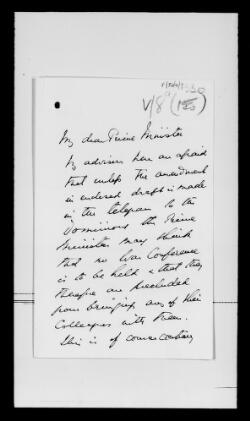 V/8 (125)
My dear Prime Minister
My advisers here are afraid
that unless the amendment
in enclosed draft is made
in the telegram to the
Dominions the Prime
Ministers may think
that no War Conference
is to be held & that they
therefore are precluded
from bringing any of their
Colleagues with them.
This is of course contrary